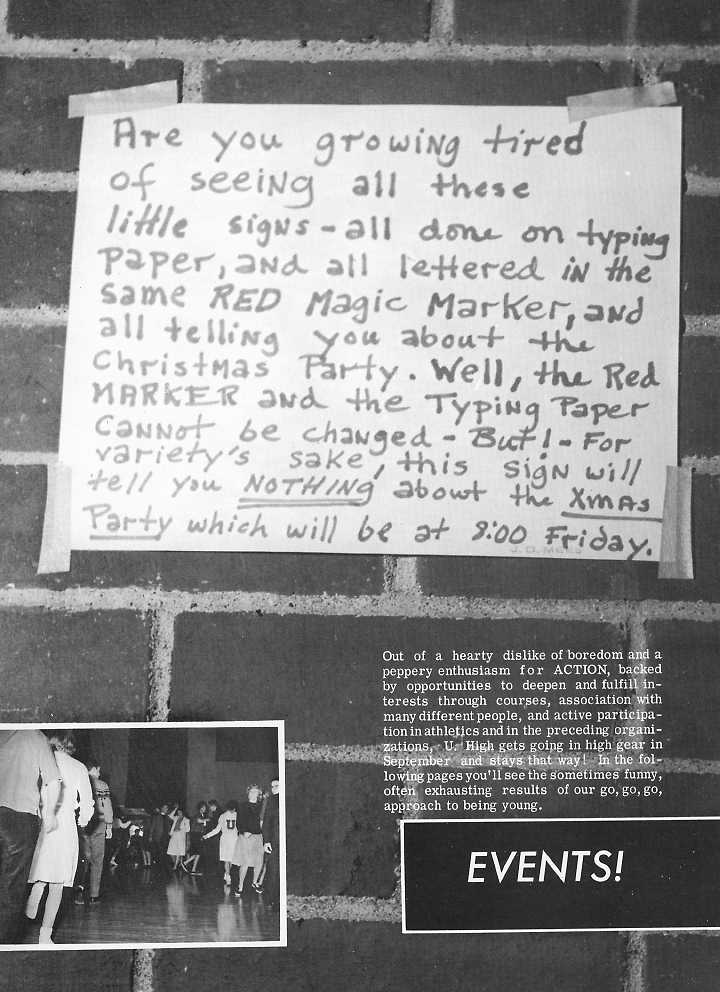 Are you growing tired
of seeing all these
little signs - all done on typing
paper, and all lettered in the
same RED Magic Marker, and
all telling you about the
Christmas Party. Well, the Red
MARKER and the Typing Paper
Cannot be changed - But! - For
variety's sake, this sign will
tell you NOTHING about the Xmas
Party which will be at 8:00 Friday.
Out of a hearty dislike of boredom and a
peppery enthusiasm for ACTION, backed
by opportunities to deepen and fulfill in-
terests through courses, association with
many different people, and active participa-
tion in athletics and in the preceding organi-
zations, U. High gets going in high gear in
September and stays that way! In the fol-
lowing pages you'll see the sometimes funny,
often exhausting results of our go, go, go,
approach to being young.
U
EVENTS!